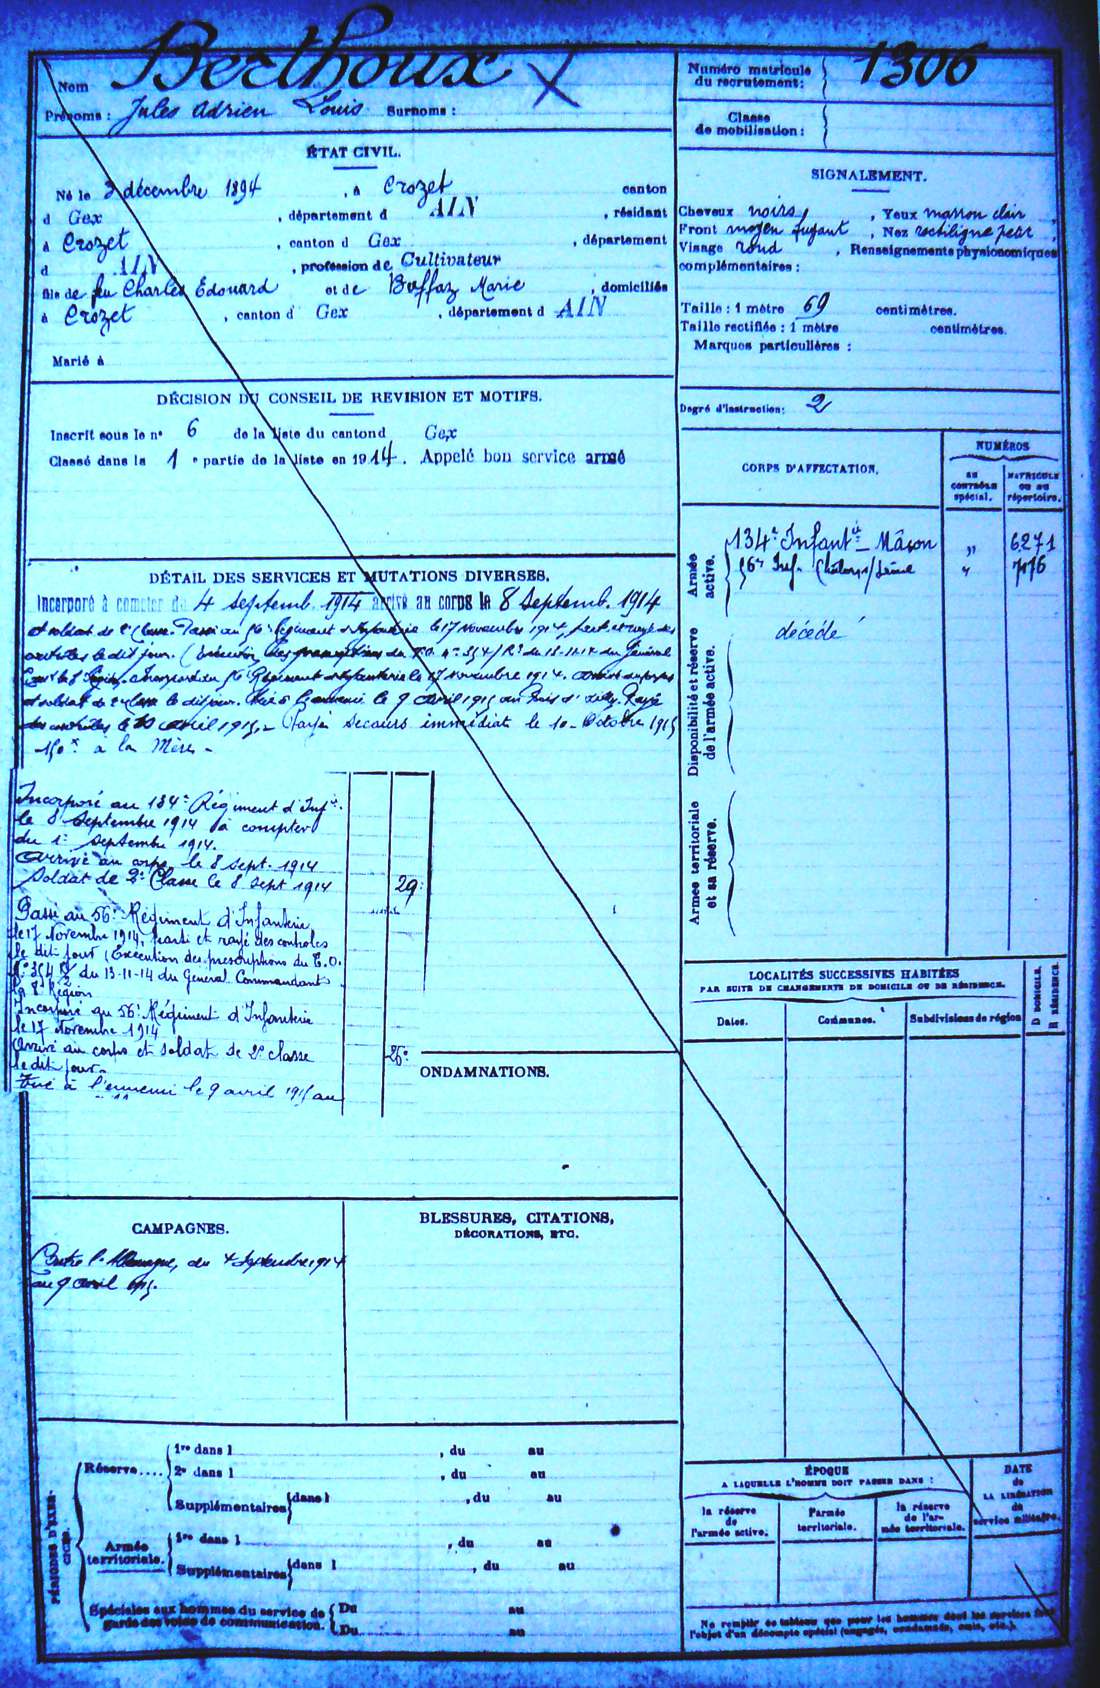 Nom Berthoux
Prénoms : Jules Adrien Louis Surnoms :
Numéro matricule du recrutement : 1306
Classe de mobilisation :
ÉTAT CIVIL.
Né le 3 décembre 1894, à Crozet canton
d Gex, département d AIN, résidant
à Crozet, canton d Gex, département
d AIN, profession de Cultivateur
fils de feu Charles Edouard et de Buffaz Marie, domiciliés
à Crozet, canton d Gex, département d AIN
Marié à
SIGNALEMENT.
Cheveux noirs, Yeux marron clair,
Front moyen fuyant, Nez rectiligne petit,
Visage rond, Renseignements physionomiques
complémentaires :
Taille : 1 mètre 69 centimètres.
Taille rectifiée : 1 mètre centimètres.
Marques particulières :
Degré d'instruction : 2
DÉCISION DU CONSEIL DE REVISION ET MOTIFS.
Inscrit sous le n° 6 de la liste du canton d Gex
Classé dans la 1e partie de la liste en 1914. Appelé bon service armé
DÉTAIL DES SERVICES ET MUTATIONS DIVERSES.
Incorporé à compter du 4 septemb. 1914 arrivé au corps le 8 Septemb. 1914
et soldat de 2e Classe. Passé au 56e Régiment d'Infanterie le 17 Novembre 1914, parti et rayé des
contrôles le dit jour. (Exécution des prescriptions du T.O. n° 354 du 13-11-14 du Général
Com't la 8e Région. Incorporé au 56e Régiment d'Infanterie le 17 novembre 1914. Arrivé au corps
et soldat de 2e classe le dit jour. Tué à l'ennemi le 9 Avril 1915 au Bois d'Ailly. Rayé
des contrôles le 10 avril 1915. - Payé secours immédiat le 10 - Octobre 1915
150 à la Mère -
Incorporé au 134e Régiment d'Infie.
le 8 Septembre 1914 à compter
du 1er septembre 1914.
Arrivé au corps le 8 sept. 1914
Soldat de 2e Classe le 8 sept 1914 29
Passé au 56e Régiment d'Infanterie
le 17 Novembre 1914, parti et rayé des contrôles
le dit jour (Exécution des prescriptions du T.O.
N° 354 du 13-11-14 du Général Commandant
la 8e Région
Incorporé au 56e Régiment d'Infanterie
le 17 Novembre 1914
Arrivé au corps et soldat de 2e classe
le dit jour.
Tué à l'ennemi le 9 avril 1915 au
ONDAMNATIONS.
CORPS D'AFFECTATION.
NUMÉROS
AU CONTRÔLE spécial.
MATRICULE OU AU répertoire.
Armée active.
134e Infantie - Mâcon " 6271
56e Inf. Chalons/Saône "
Disponibilité et réserve de l'armée active.
décédé
Armée territoriale et sa réserve.
LOCALITÉS SUCCESSIVES HABITÉES
PAR SUITE DE CHANGEMENTS DE DOMICILE OU DE RÉSIDENCE.
D DOMICILE.
R RÉSIDENCE.
Dates.
Communes.
Subdivisions de région
CAMPAGNES.
Contre l'Allemagne, du 4 Septembre 1914
au 9 avril 1915.
BLESSURES, CITATIONS,
DÉCORATIONS, ETC.
PÉRIODES D'EXERCICES.
Réserve....
1re dans l , du au
2e dans l , du au
Supplémentaires dans l , du au
Armée territoriale.
1re dans l , du au
Supplémentaires dans l , du au
Spéciales aux hommes du service de garde des voies de communication.
Du au
Du au
ÉPOQUE
A LAQUELLE L'HOMME DOIT PASSER DANS :
DATE
de
LA LIBÉRATION
du
service militaire.
la réserve de l'armée active.
l'armée territoriale.
la réserve de l'armée territoriale.
Ne remplir ce tableau que pour les hommes dont les services font
l'objet d'un décompte spécial (engagés, condamnés, omis, etc.).